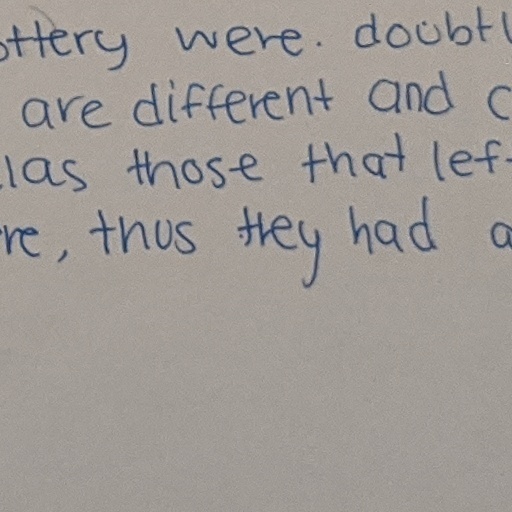 ottery were. doubtl
are different and c
las those that lef
re, thus they had a